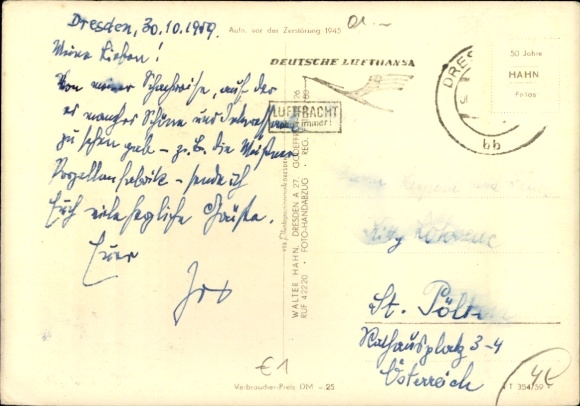 Dresden, 30.10.1959.
Meine Lieben!
Von meiner Schachreise, auf der
es manches Schöne und Interessante
zu sehen gab – z.B. die Meißner
Porzellanfabrik – sende ich
Euch viele herzliche Grüße.
Euer
Aufn. vor der Zerstörung 1945
DEUTSCHE LUFTHANSA
LUFTFRACHT
immer!
DRES
bb
50 Jahre
HAHN
Fotos
WALTER HAHN, DRESDEN A 27, GODEFFROYSTR. 26
RUF 42220 · FOTO-HANDABZUG · REG.
St. Pölten
Rathausplatz 3-4
Österreich
€1
4€
Verbraucher-Preis DM -.25
T 354/59